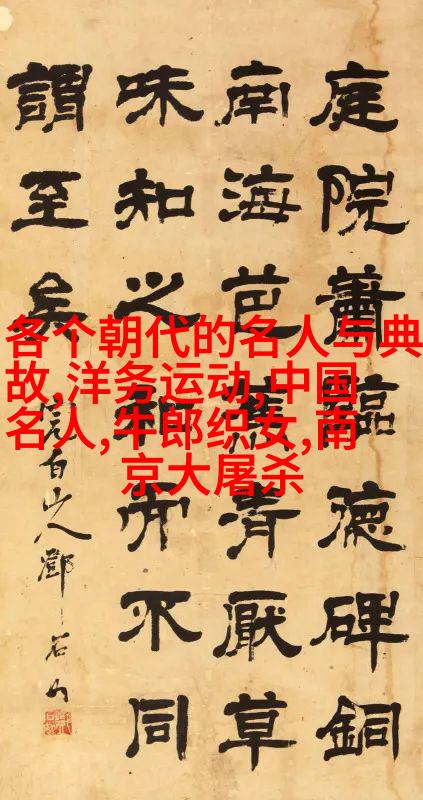 庭院蕭臨德碑銅
南海芭蕉青厭草
味知之不同
謂至矣
完白山人鄧石如
各个朝代的名人与典
故,洋务运动,中国
名人,牛郎织女,南
京大屠杀